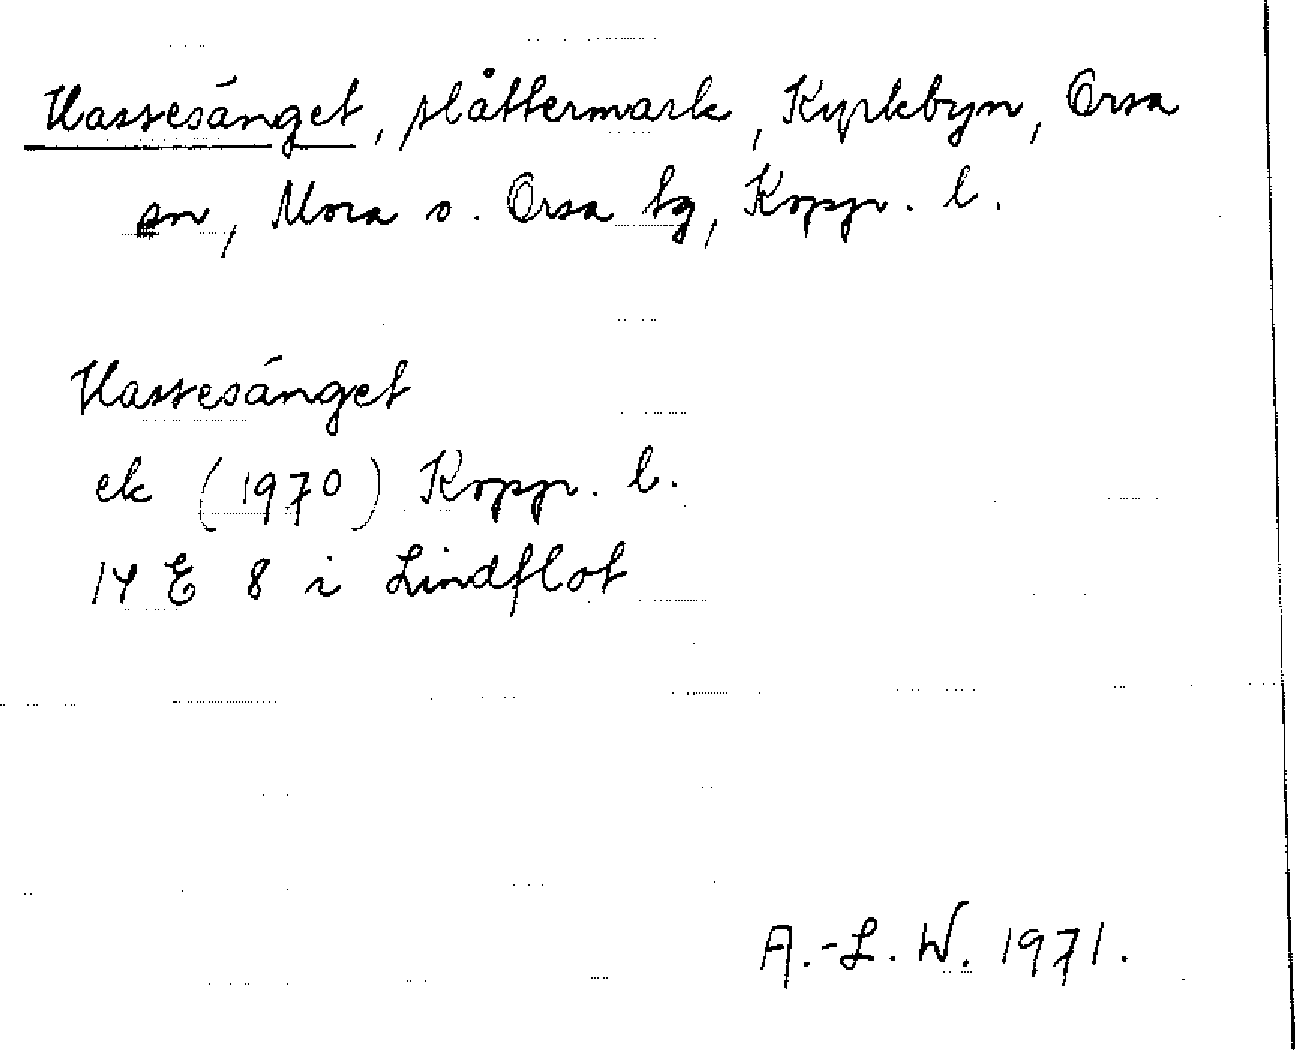 Hassesänget, slåttermark, Kyrkbyn, Orsa
sn, Mora o. Orsa tg, Kopp. l.
Hassesänget
ek (1970) Kopp. l.
14 E 8 i Lindflot
A.-L. W. 1971.